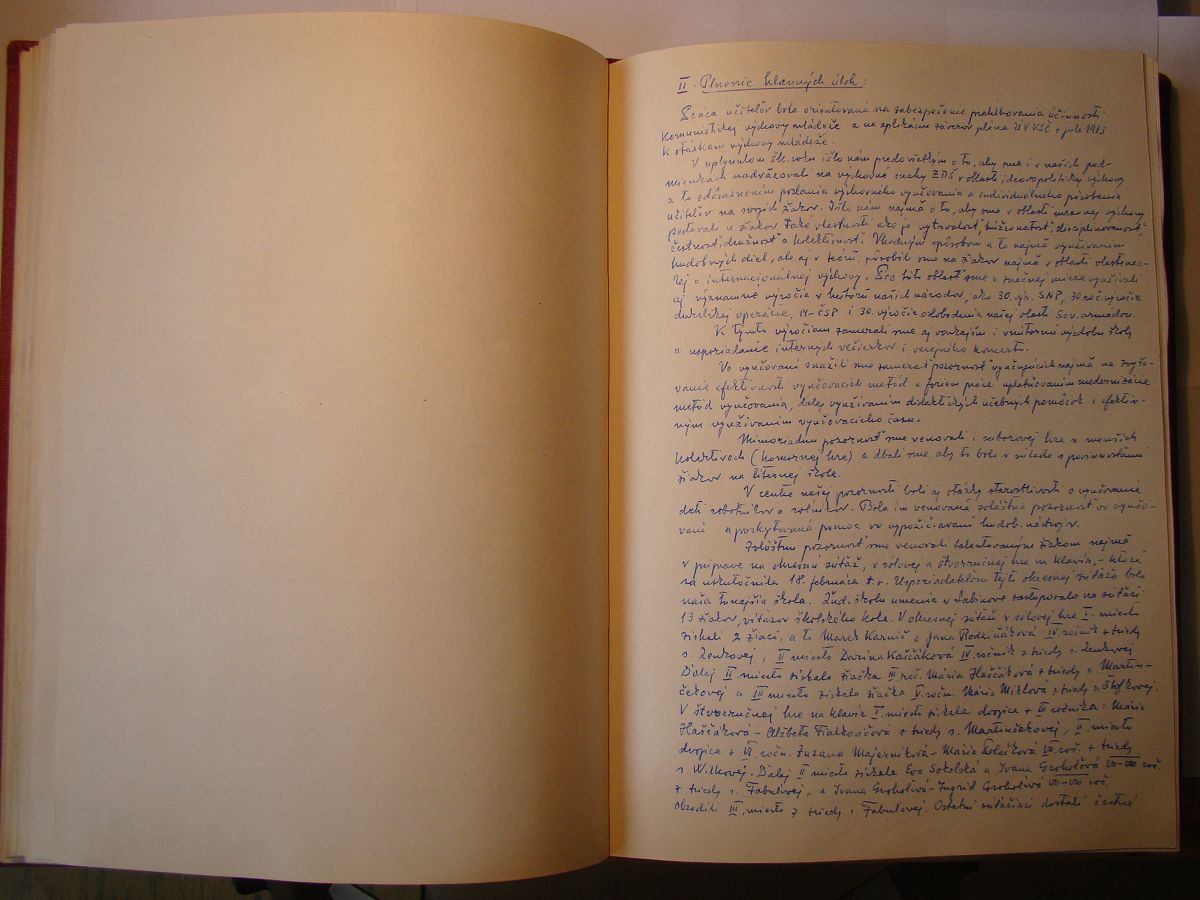 II. Plnenie hlavných úloh:
Práca učiteľov bola orientovaná na zabezpečenie prehlbovania účinnosti
komunistickej výchovy mládeže a na aplikáciu záverov pléna ÚV KSČ z júla 1973
k otázkam výchovy mládeže.
V uplynulom šk. roku išlo nám predovšetkým o to, aby sme i v našich pod-
mienkach nadväzovali na výchovné snahy ZDŠ v oblasti ideovopolitickej výchovy
a to zdôraznením poslania výchovného vyučovania a individuálneho pôsobenia
učiteľov na svojich žiakov. Išlo nám najmä o to, aby sme v oblasti mravnej výchovy
pestovali u žiakov také vlastnosti ako je vytrvalosť, húževnatosť, disciplinovanosť,
čestnosť, družnosť a kolektívnosť. Vhodným spôsobom a to najmä využívaním
hudobných diel, ale aj v teórii, pôsobili sme na žiakov najmä v oblasti vlastenec-
kej a internacionálnej výchovy. Pre túto oblasť sme v značnej miere využívali
aj významné výročia z histórii našich národov, ako 30. výr. SNP, 30 roč. výročia
duklskej operácie, M-ČSP i 30. výročie oslobodenia našej vlasti Sov. armádou.
K týmto výročiam zamerali sme aj vonkajšiu i vnútornú výzdobu školy
a usporiadanie interných večierkov i verejného koncertu.
Vo vyučovaní snažili sme zamerať pozornosť vyučujúcich najmä na zvyšo-
vanie efektívnosti vyučovacích metód a foriem práce uplatňovaním modernizácie
metód vyučovania, ďalej využívaním didaktických učebných pomôcok i efektív-
nym využívaním vyučovacieho času.
Mimoriadnu pozornosť sme venovali i súborovej hre v menších
kolektívoch (komornej hre) a dbali sme, aby to bolo v súlade s povinnosťami
žiakov na liternej škole.
V centre našej pozornosti boli aj otázky starostlivosti o vyučovanie
detí robotníkov a roľníkov. Bola im venovaná zvláštna pozornosť vo vyučo-
vaní a poskytovaná pomoc vo vypožičiavaní hudob. nástrojov.
Zvláštnu pozornosť sme venovali talentovaným žiakom najmä
v príprave na okresnú súťaž, v sólovej a štvorručnej hre na klavír, - ktorá
sa uskutočnila 18. februára t.r. Usporiadateľom tejto okresnej súťaže bola
naša tunajšia škola. Ľud. školu umenia v Sabinove zastupovalo na súťaži
13 žiakov, víťazov školského kola. V okresnej súťaži v sólovej hre I. miesto
získali 2 žiaci, a to Marek Karniš a Jana Rodziňáková IV. ročník z triedy
s. Zenkovej, II miesto Darina Kaščáková IV. ročník z triedy s. Zenkovej.
Ďalej II. miesto získala žiačka III. roč. Mária Haščáková z triedy s. Martin-
čekovej a III miesto získala žiačka V. ročn. Mária Miklová z triedy s. Štofkovej.
V štvorručnej hre na klavír I. miesto získala dvojica z III. ročníka: Mária
Haščáková - Alžbeta Fialkovičová z triedy s. Martinčekovej, II. miesto
dvojica z VI. ročn. Zuzana Majerníková - Mária VII. roč. z triedy
s. Wilkovej. Ďalej II miesto získala Eva Sokolská a Ivana Groholová VII-VIII roč.
z triedy s. Fabulovej, a Ivana Groholová - Ingrid Groholová VII-VIII roč.
obsadili III. miesto z triedy s. Fabulovej. Ostatní súťažiaci dostali čestné